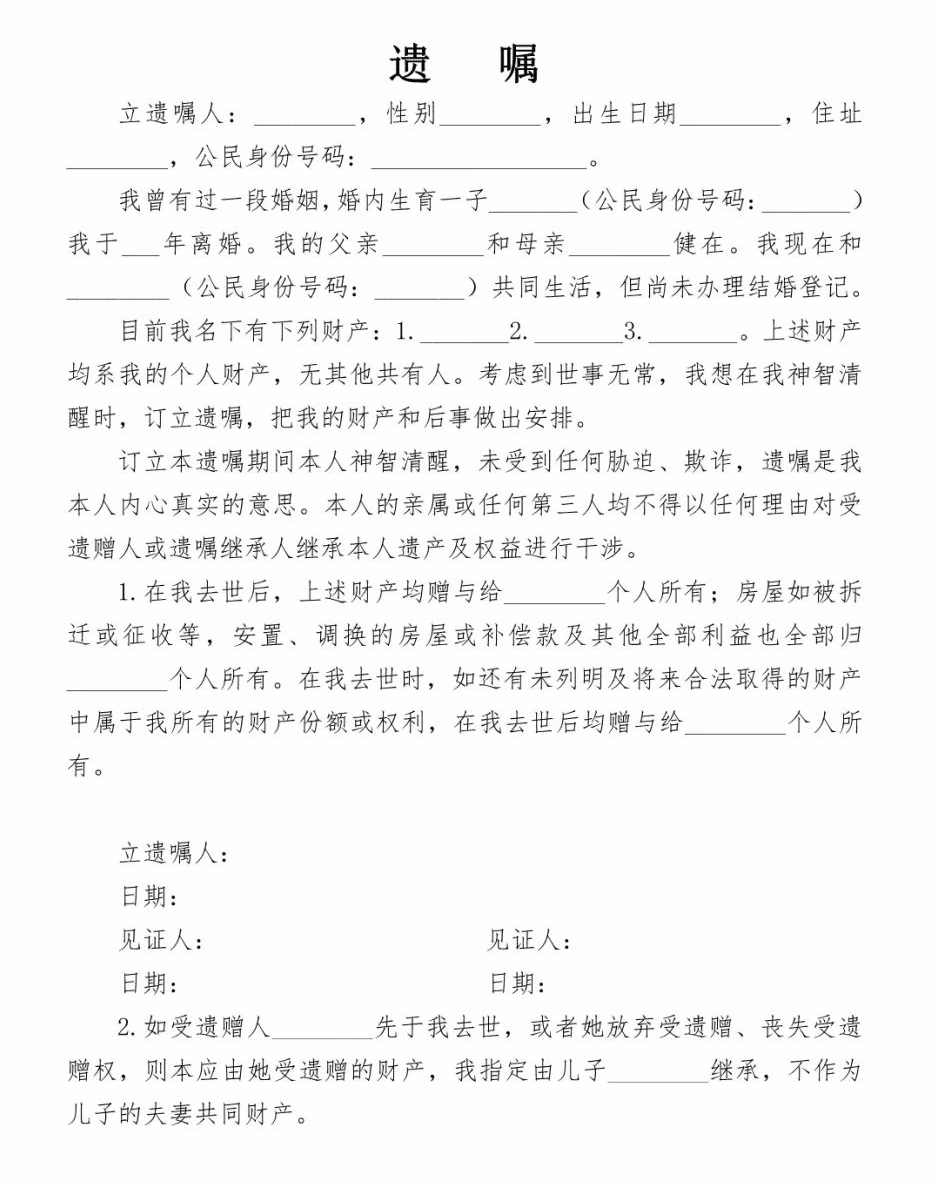 遗 嘱
立遗嘱人：________，性别________，出生日期________，住址
________，公民身份号码：_________________。
我曾有过一段婚姻，婚内生育一子_______（公民身份号码：_______）
我于___年离婚。我的父亲________和母亲________健在。我现在和
________（公民身份号码：_______）共同生活，但尚未办理结婚登记。
目前我名下有下列财产：1._______2._______3._______。上述财产
均系我的个人财产，无其他共有人。考虑到世事无常，我想在我神智清
醒时，订立遗嘱，把我的财产和后事做出安排。
订立本遗嘱期间本人神智清醒，未受到任何胁迫、欺诈，遗嘱是我
本人内心真实的意思。本人的亲属或任何第三人均不得以任何理由对受
遗赠人或遗嘱继承人继承本人遗产及权益进行干涉。
1.在我去世后，上述财产均赠与给________个人所有；房屋如被拆
迁或征收等，安置、调换的房屋或补偿款及其他全部利益也全部归
________个人所有。在我去世时，如还有未列明及将来合法取得的财产
中属于我所有的财产份额或权利，在我去世后均赠与给________个人所
有。
立遗嘱人：
日期：
见证人： 见证人：
日期： 日期：
2.如受遗赠人________先于我去世，或者她放弃受遗赠、丧失受遗
赠权，则本应由她受遗赠的财产，我指定由儿子________继承，不作为
儿子的夫妻共同财产。